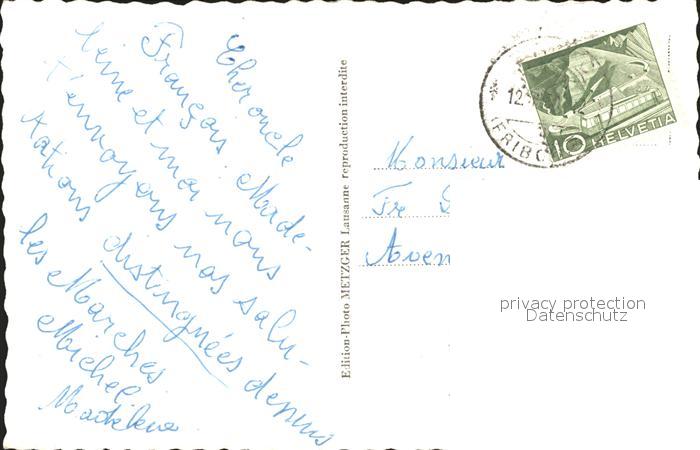 Cher oncle
François. Made-
leine et moi nous
t'envoyons nos salu-
tations distinguées depuis
les Marches
Michel
Madeleine
Edition-Photo METZGER Lausanne reproduction interdite
Monsieur
Fr
Aven
12.
(FRIBO
10 HELVETIA
privacy protection
Datenschutz